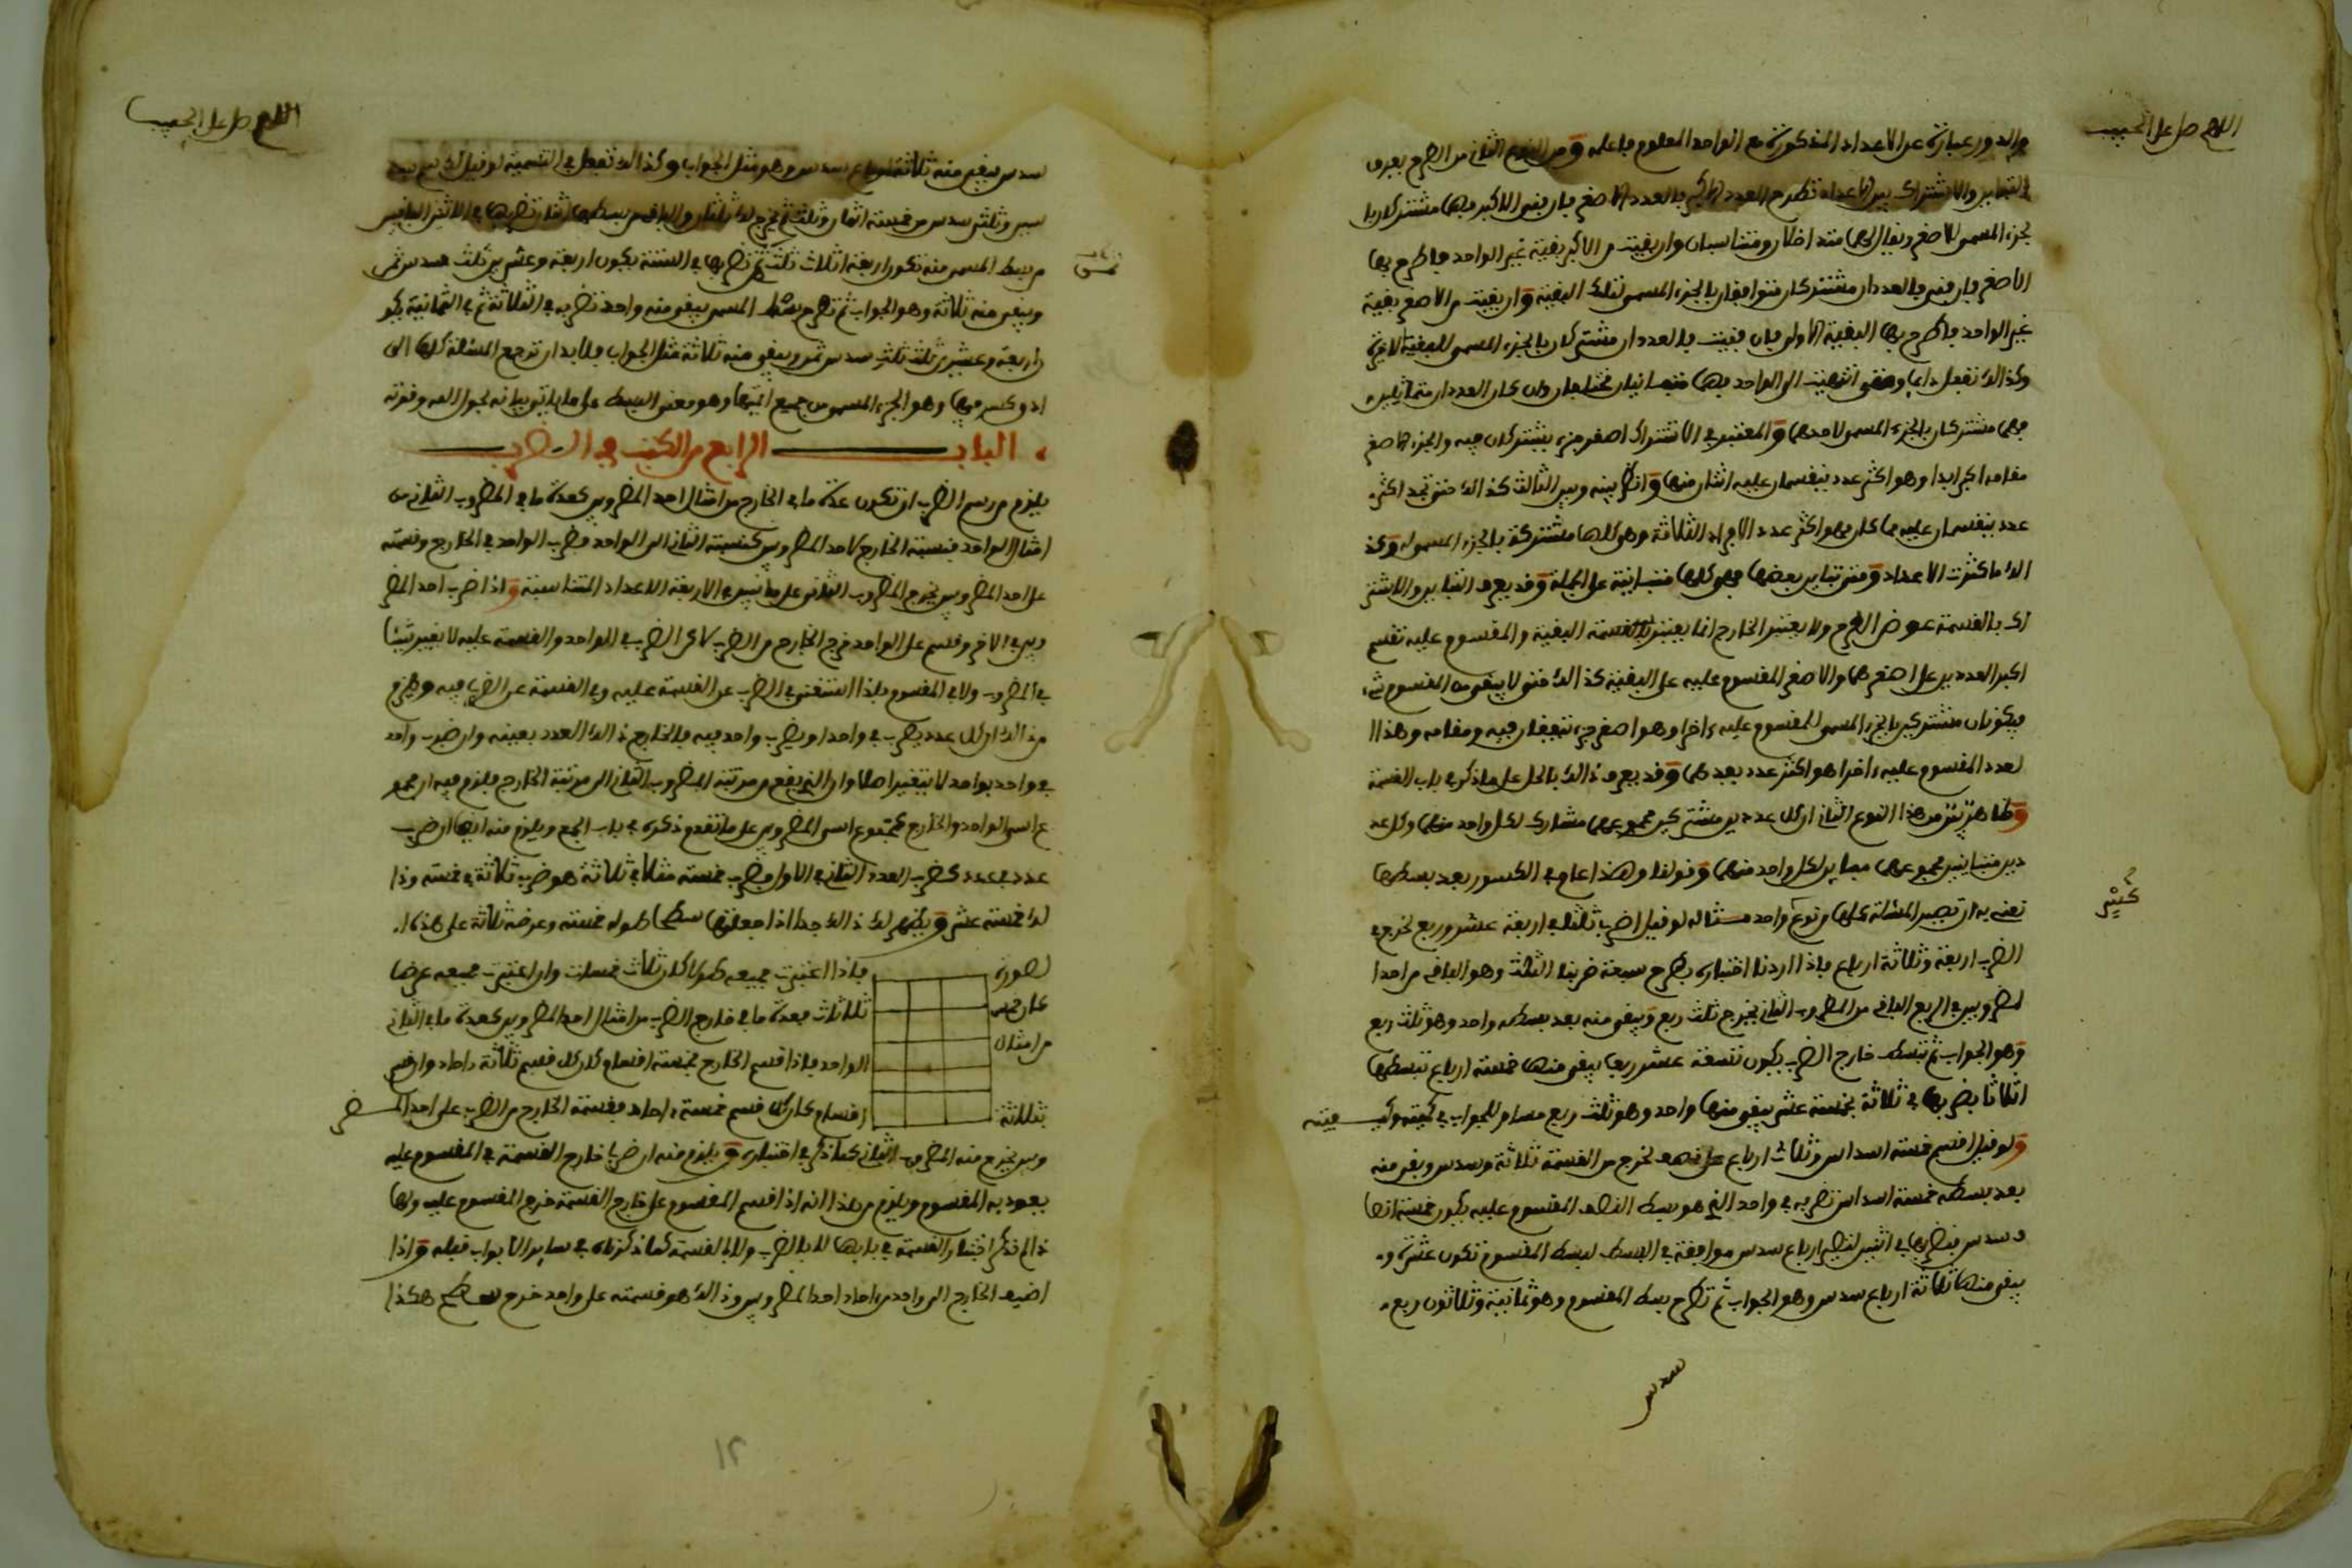 اللهم صل على الحبيب
والدور عبارة عن الاعداد المذكورة مع الواحد المعلوم فاعلمه ومن النوع الثاني من الطرح يعرف
التباين والاشتراك بين الاعداد تطرح العدد الاكبر بالعدد الاصغر فان فنى الاكبر فهما مشتركان با
لجزء المسمى للاصغر ويقال لهما متداخلان ومتناسبان وان بقيت من الاكبر بقية غير الواحد فاطرح بها
الاصغر فان فنى فالعددان مشتركان متوافقان بالجزء المسمى لتلك البقية وان بقيت من الاصغر بقية
غير الواحد فاطرح بها البقية الاولى فان فنيت فالعددان مشتركان بالجزء المسمى للبقية الاخرى
وكذالك تفعل دايما ومتى انتهيت الى الواحد فهما متباينان مختلفان وان كان العددان متماثلين
فهما مشتركان بالجزء المسمى لاحدهما والمعتبر في الاشتراك اصغر جزء يشتركان فيه والجزء الاصغر
مقامه اكبر ابدا وهو اكثر عدد ينقسمان عليه اثنان منهما وانظر بينه وبين الثالث كذالك حتى تجد اكثر
عدد ينقسمان عليه فما كان فهو اكثر عدد الافراد الثلاثة وهي كلها مشتركة بالجزء المسمى له وكذ
الك ما كثرت الاعداد ومتى تباين بعضها فهي كلها متباينة على الجملة وقد يعرف التباين والاشتر
اك بالقسمة عوض الطرح ولا يعتبر الخارج انما يعتبر بالقسمة البقية والمقسوم عليه تقسم
اكبر العددين على اصغرهما والاصغر المقسوم عليه على البقية كذالك حتى لا يبقى من المقسوم شيء
فيكونان مشتركين بالجزء المسمى للمقسوم عليه ءاخرا وهو اصغر جزء يتفقان فيه ومقامه وهذا ا
لعدد المقسوم عليه ءاخرا هو اكثر عدد يعدهما وقد يعرف ذالك بالحل على ما ذكر في باب القسمة
وظاهر من هذا النوع الثاني ان كل عددين مشتركين مجموعهما مشارك لكل واحد منهما وكل عد
دين متباينين مجموعهما مباين لكل واحد منهما وقولنا وهذا عام في الكسور بعد بسطها
كثير
نعني به ان تصير المسئلة كلها من نوع واحد مثاله لو قيل اضرب ثلثا في اربعة عشر وربع لخرج في
الضرب اربعة وثلاثة ارباع فاذا اردنا اختباره بطرح سبعة ضربنا الثلث وهو الباقي من احد ا
لمضروبين في الربع الباقي من المضروب الثاني يخرج ثلث ربع ويبقى منه بعد بسطه واحد وهو ثلث ربع
وهو الجواب ثم تبسط خارج الضرب يكون تسعة عشر ربعا يبقى منها خمسة ارباع تبسطها
اثلاثا بضربها في ثلاثة بخمسة عشر يبقى منها واحد وهو ثلث ربع مساو للجواب في كميته وكيفيته
ولو قيل اقسم خمسة اسداس وثلاث ارباع على نصف لخرج من القسمة ثلاثة وسدس وبقي منه
بعد بسطه خمسة اسداس تضربه في واحد الذي هو بسط النصف المقسوم عليه يكون خمسة انصا
ف سدس فتضربها في اثنين لتصير ارباع سدس موافقة في البسط لبسط المقسوم تكون عشرة و
يبقى منها ثلاثة ارباع سدس وهو الجواب ثم تطرح بسط المقسوم وهو ثمانية وثلاثون ربع
سدس
اللهم صل على الحبيب
سدس يبقى منه ثلاثة ارباع سدس وهو مثل الجواب وكذالك تفعل في التسمية لو قيل لك سم
سبن وثلثي سدس من خمسة اثمان وثلث لخرج لك ثلثان والباقي من بسطها اثنان تضربها في الاثنين الباقيين
من بسط المسمى منه تكون اربعة اثلاث ثلث ثم تضربها في الستة يكون اربعة وعشرين ثلث سدس ثمن
ويبقى منه ثلاثة وهو الجواب ثم تطرح بسط المسمى يبقى منه واحد تضربه في الثلاثة ثم في الثمانية يكو
ن اربعة وعشرين ثلث ثلث سدس ثمن ويبقى منه ثلاثة مثل الجواب فلا بد ان ترجع المسئلة كلها الى
ادق كسر فيها وهو الجزء المسمى من جميع ائمتها وهو معنى البسط على ما ياتي بيانه بحول الله وقوته
الباب الرابع من الكتاب في الضرب
يلزم من رسم الضرب ان تكون عدة ما في الخارج من امثال احد المضروبين كعدة ما في المضروب الثاني من
امثال الواحد فنسبة الخارج لاحد المضروبين كنسبة الثاني الى الواحد فضرب الواحد في الخارج وقسمته
على احد المضروبين يخرج المضروب الثاني على ما تبين في الاربعة الاعداد المتناسبة واذا ضرب احد المضر
وبين في الاخر وقسم على الواحد خرج الخارج من الضرب لان الضرب في الواحد والقسمة عليه لا يغير شيئا
في المضروب ولا في المقسوم فلذا استغنى في الضرب عن القسمة عليه وفي القسمة عن الضرب فيه ويلزم
من ذالك ان كل عدد يضرب في واحد او يضرب واحد فيه فالخارج ذالك العدد بعينه وان ضرب واحد
في واحد بواحد لا يتغير اصلا وان الذي يقع من مرتبة المضروب الثاني الى مرتبة الخارج فيلزم فيه ان مجمو
ع اسي الواحد والخارج كمجموع اسي المضروبين على ما تقدم ذكره في باب الجمع ويلزم منه ايضا ان ضرب
عدد في عدد كضرب العدد الثاني في الاول فضرب خمسة مثلا في ثلاثة هو ضرب ثلاثة في خمسة وذا
لك خمسة عشر ويظهر لك ذالك جدا اذا جعلتها سطحا طوله خمسة وعرضه ثلاثة على هذه ا
لصورة فاذا اعتبرت جميعه طولا كان ثلاث خمسات وان اعتبرت جميعه عرضا
كان خمس ثلاثات فعدة ما في خارج الضرب من امثال احد المضروبين كعدة ما في الثاني
من امثال الواحد فاذا قسم الخارج بخمسة اقسام كان كل قسم ثلاثة ءاحاد وان قسم
بثلاثة اقسام كان كل قسم خمسة ءاحاد فقسمة الخارج من الضرب على احد المضر
وبين يخرج منه المضروب الثاني كما ذكر في اختباره ويلزم منه ان ضرب خارج القسمة في المقسوم عليه
يعود به المقسوم ويلزم من هذا انه اذا قسم المقسوم على خارج القسمة خرج المقسوم عليه ولهذا
لم نذكر اختبار القسمة في بابها لا بالضرب ولا بالقسمة كما ذكرناه في ساير الابواب قبله واذا
اضيف الخارج الى واحد من ءاحاد احد المضروبين وذالك هو قسمته على واحد خرج سطح هكذا
١٢